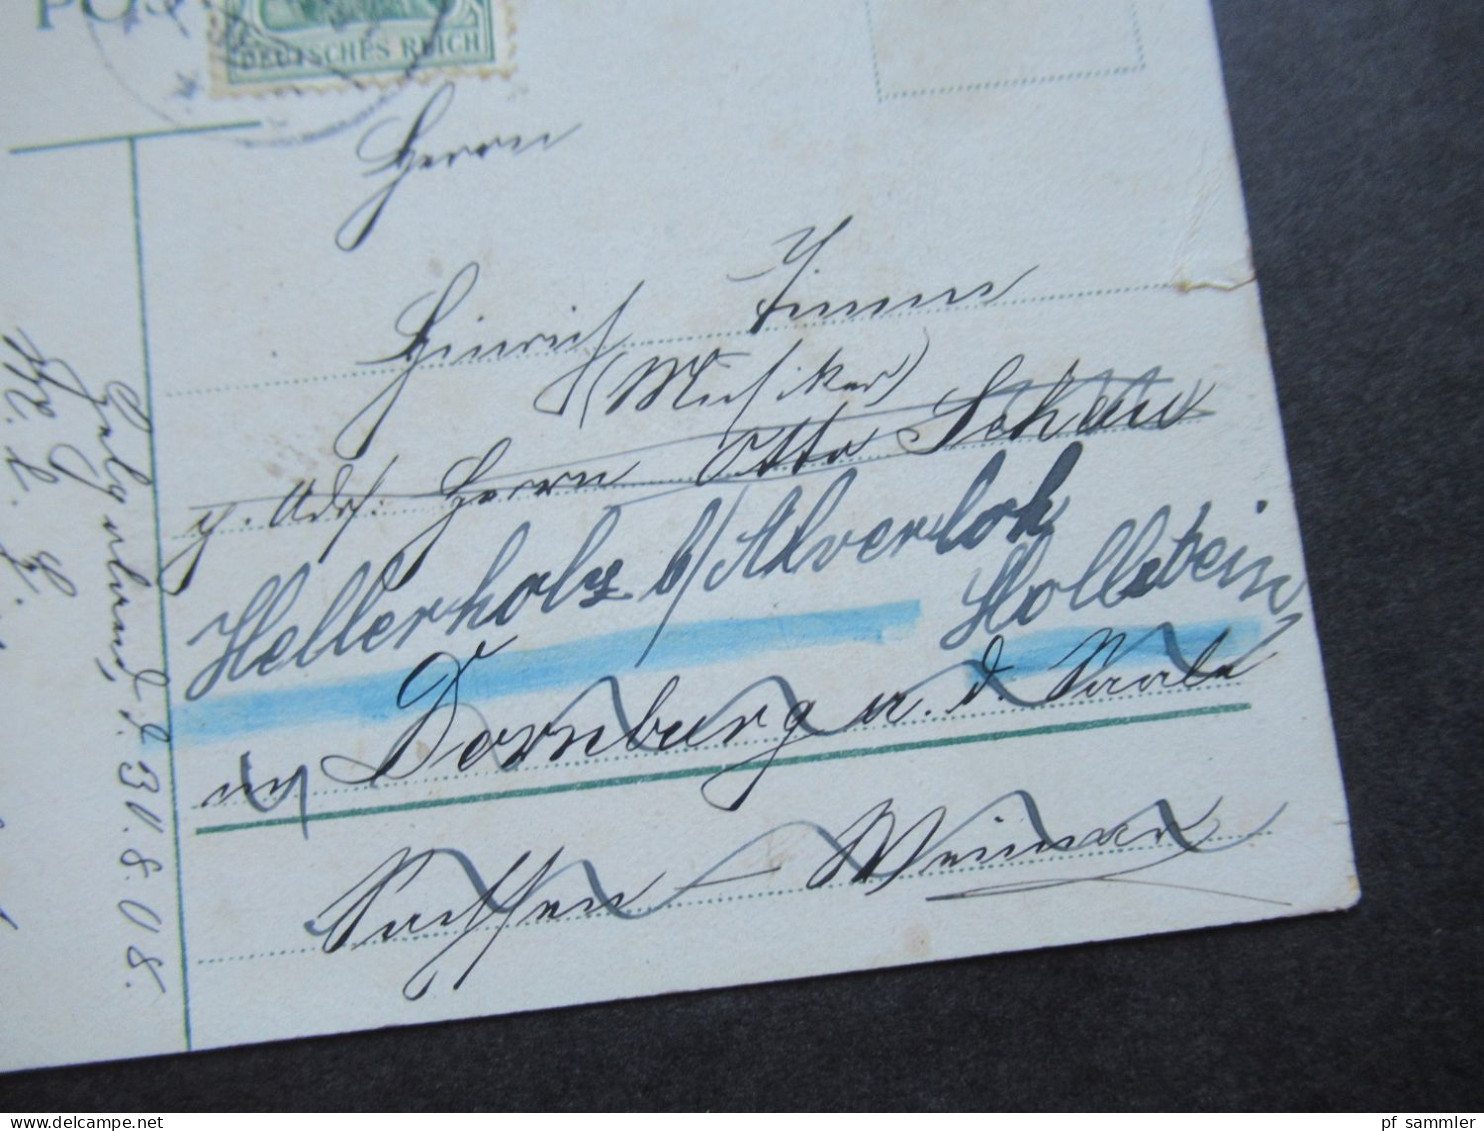 DEUTSCHES REICH
Herrn
Heinrich Timm
(Musiker)
p. Adr. Herrn Otto Schau
Hellerholz b/ Alverloh
Holstein
in Dornburg a. d. Saale
Sachsen – Weimar
d. 30.8.08.
pf_sammler